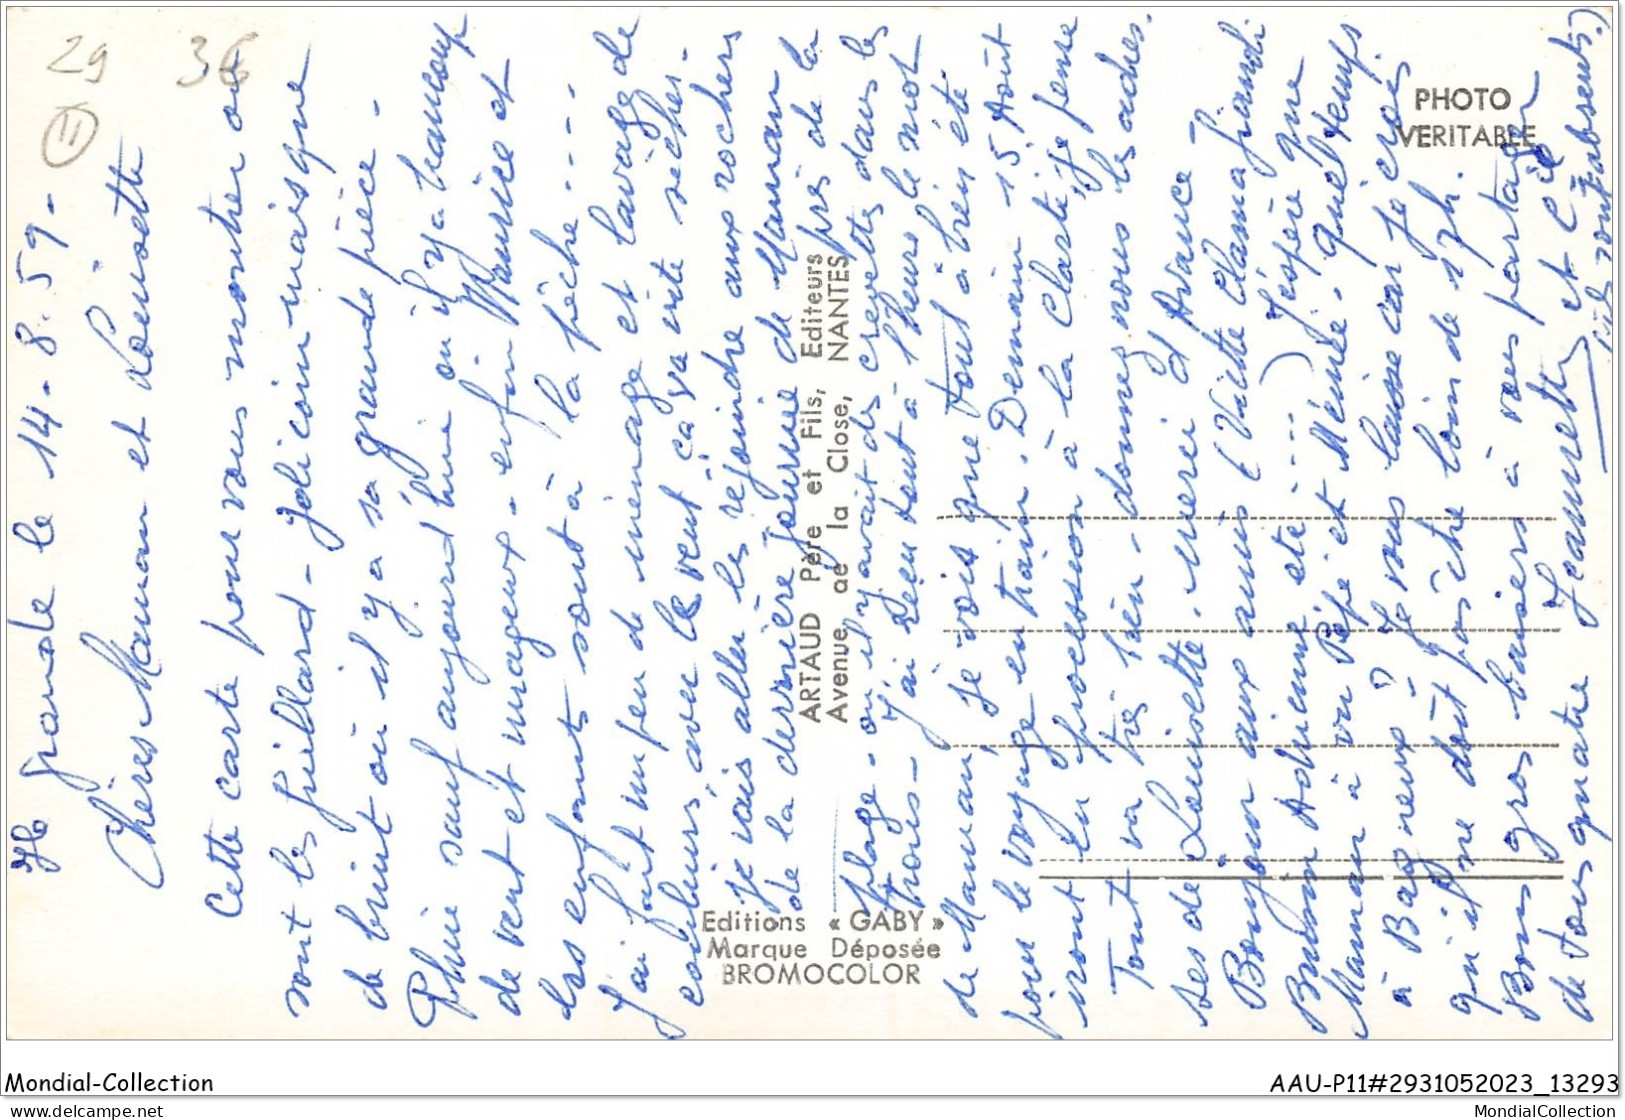 29 36
11
grande le 14-8-59-
Chères Maman et Louisette
Cette carte pour vous montrer où
sont les - joli coin mais que
de bruit où il y a sa grande pièce -
Pluie sauf aujourd'hui où il y a beaucoup
de vent et nuageux - enfin Maurice et
les enfants sont à la pêche ----
J'ai fait un peu de ménage et lavage de
couleurs, avec le vent ça va vite sécher -
je vais aller les rejoindre aux rochers
de la dernière journée de Maman près de la
plage - où il y avait des crevettes dans les
trous - J'ai reçu tout à l'heure le mot
de Maman, je vois que tout a bien été
pour le voyage en train. Demain 15 Août
iront en procession à la Clarté, je pense
Tout va très bien - donnez nous les
ses de Louisette. merci d'Avance
Bonjour aux amis (Valette
Adrienne été ...) J'espère que
Maman a vu Pépé et Mémé. Quel temps
à Bagneux? Je vous laisse car je crois
qu'il ne doit pas être loin de 17h.
Bons gros baisers à vous partager
de tous quatre Jeannette et Cie
(ils sont absents)
PHOTO
VERITABLE
ARTAUD Père et Fils, Editeurs
Avenue de la Close, NANTES
Editions « GABY »
Marque Déposée
BROMOCOLOR
Mondial-Collection
AAU-P11#2931052023_13293
delcampe.net
MondialCollection